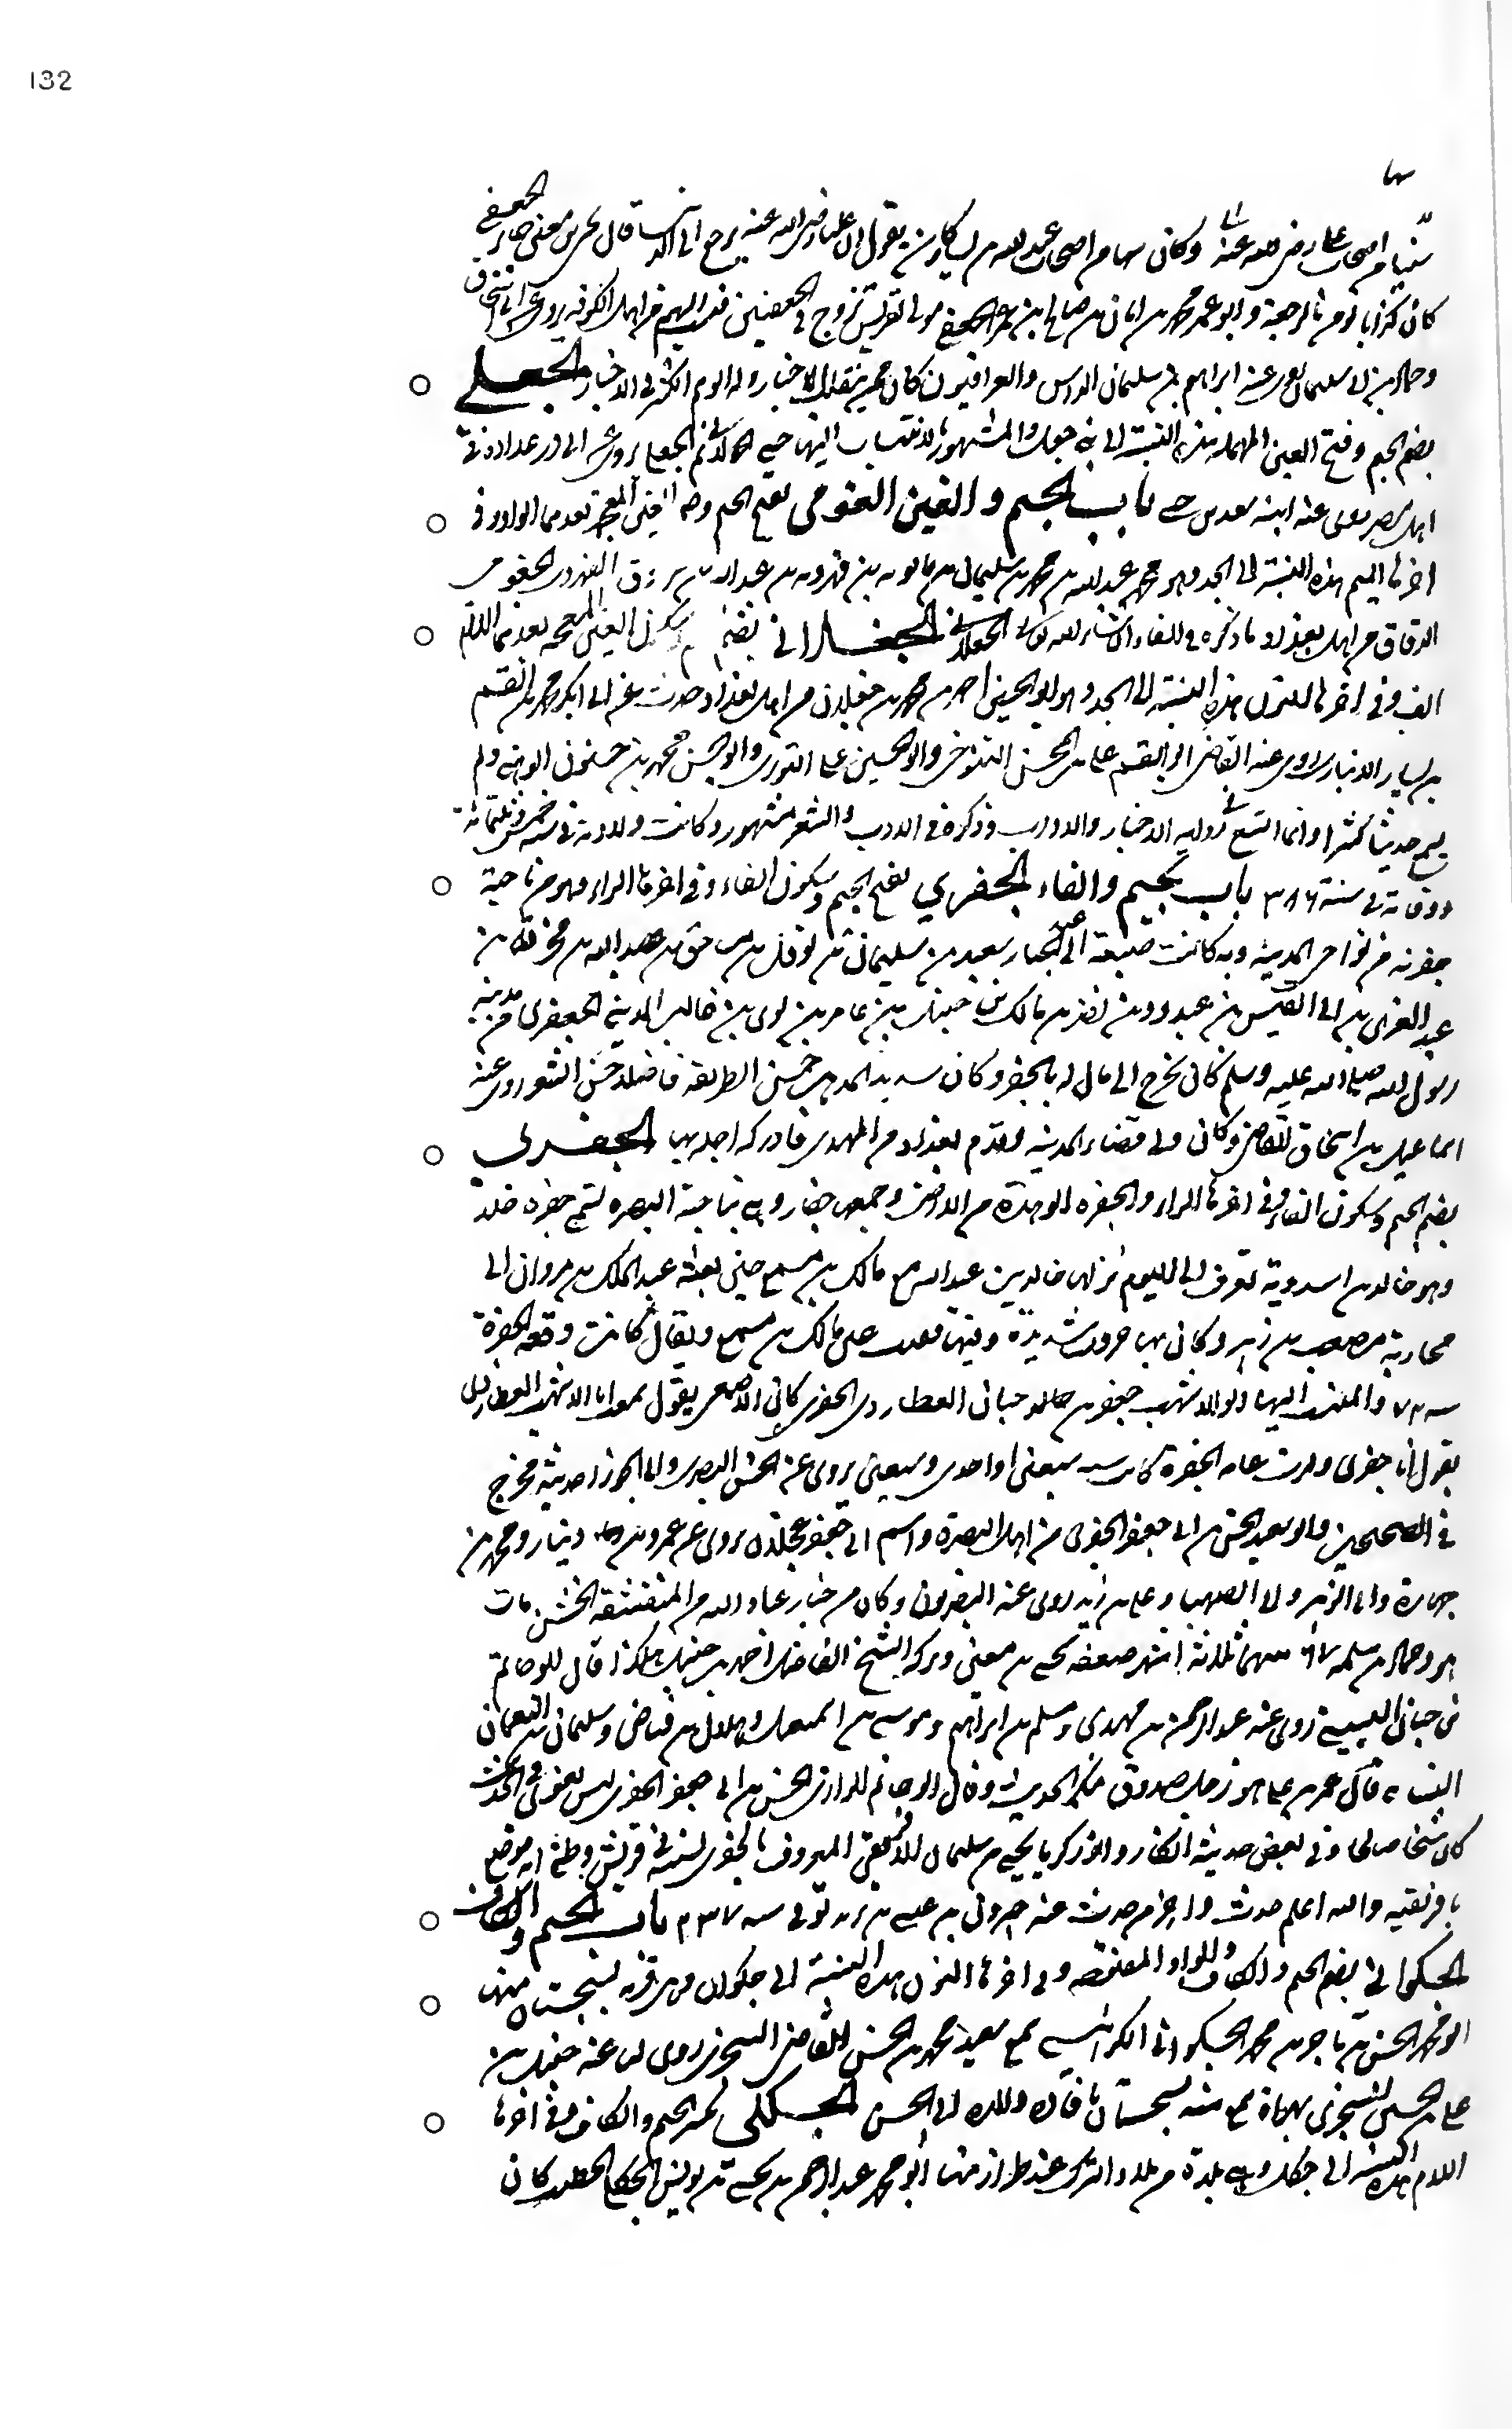 132
سبئيا من اصحاب علي رضي الله عنه وكان من اصحاب عبد الله بن سبا وكان يقول ان عليا رضي الله عنه يرجع الى الدنيا قال يحيى بن معين جابر الجعفي
كان كذابا يومن بالرجعة وابو عمر محمد بن ابان بن صالح بن عمير الجعفي مولى لقريش تزوج في الجعفيين فنسب اليهم من اهل الكوفه يروي عن ابي اسحاق
وحماد بن ابي سليمان روى عنه ابراهيم بن سليمان والعراقيون كان ممن يقلب الاخبار وله الوهم الكثير في الاخبار الجعلي
بضم الجيم وفتح العين المهملة هذه النسبة الى بني جعل والمشهور بالانتساب اليها حي الجعلي روى عن ابي ذر عداده في
اهل مصر روى عنه ابنه سعد بن حي باب الجيم والغين الجغومي بفتح الجيم وضم الغين المعجمة بعدهما الواو وفي
اخرها الميم هذه النسبة الى الجد وهو محمد بن عبد الله بن محمد بن سليمان بن بابويه بن فهرويه بن عبد الله بن مرزوق الجغومي
الدقاق من اهل بغداد ذكره في الفاء ان شاء الله تعالى الجغلاني بضم الجيم وسكون الغين المعجمة بعدهما اللام
الف وفي اخرها النون هذه النسبة الى الجد وهو ابو الحسين احمد بن محمد بن جغلان من اهل بغداد حدث عن ابي بكر محمد بن القسم
بن بشار الانباري روى عنه القاضي ابو القسم علي بن المحسن التنوخي وابو الحسين علي التوزي وابو الحسن محمد بن حسنون ولم
يسمع حديثا كثيرا وانما اتسع في رواية الاخبار والاداب وذكره في الادب والشعر مشهور وكانت ولادته في سنة خمس وثلثمائة
ووفاته في سنة ٣٨٦ باب الجيم والفاء الجفري بفتح الجيم وسكون الفاء وفي اخرها الراء وهو من ناحية
جفرنه من نواحي المدينة وبه كانت ضيعة ابي عبد الجبار سعيد بن سليمان بن نوفل بن مساحق بن عبد الله بن مخرمة بن
عبد العزى بن ابي القيس بن عبد ود بن نضر بن مالك بن حسل بن عامر بن لوي بن غالب المديني الجفري من مدينة
رسول الله صلى الله عليه وسلم كان يخرج الى مال له بالجفر وكان سديد المذهب حسن الطريقة فاضلا حسن الشعر روى عنه
اسماعيل بن اسحاق القاضي وكان ولي قضاء المدينة وقدم بغداد من المهدي فادركه اجله بها الجفري
بضم الجيم وسكون الفاء وفي اخرها الراء والجفره الوهدة من الارض وجمعها جفار وهي بناحية البصره تسمى جفرة خالد
وهو خالد بن اسيد وبه تعرف الى اليوم نزلها خالد بن عبد الله مع مالك بن مسمع حين بعثه عبد الملك بن مروان الى
محاربة مصعب بن زبير وكان بها حروب شديدة وفيها فقئت عين مالك بن مسمع ويقال كانت وقعة الجفرة
سنة ٧٠ والمنتسب اليها ابو الاشهب جعفر بن حيان العطاردي الجفري كان الاصمعي يقول سمعت ابا الاشهب العطاردي
يقول انا جفري ولدت عام الجفرة كانت سنة سبعين او احدى وسبعين يروى عن الحسن البصري وابي الجوزا حديثه مخرج
في الصحيحين وابو سعيد الحسن بن ابي جعفر الجفري من اهل البصرة واسم ابي جعفر عجلان يروى عن عمرو بن دينار ومحمد بن
جحادة وابي الزبير وابي الصهباء وعلي بن زيد روى عنه البصريون وكان من خيار عباد الله من المتقشفة الخشن مات
هو وحماد بن سلمة ١٦٧ بينهما ثلاثة اشهر ضعفه يحيى بن معين وتركه الشيخ الفاضل احمد بن حنبل هكذا قال ابو حاتم
بن حبان البستي روى عنه عبد الرحمن بن مهدي ومسلم بن ابراهيم وموسى بن اسمعيل وهلال بن فياض وسليمان بن النعمان
الشيباني قال عمر بن علي هو رجل صدوق منكر الحديث وقال ابو حاتم الرازي الحسن بن ابي جعفر الجفري ليس بقوي في الحديث
كان شيخا صالحا وفي بعض حديثه انكار وابو زكريا يحيى بن سليمان الافريقي المعروف بالجفري نسبه في قريش وظني انه موضع
بافريقيه والله اعلم حدث واخر من حدث عنه جبرون بن عيسى بن يزيد توفي سنة ٢٣٧ باب الجيم والكاف
الجكواني بضم الجيم والكاف والواو المفتوحه وفي اخرها النون هذه النسبة الى جكوان وهي قرية بسجستان منها
ابو محمد الحسن بن فاخر بن محمد الجكواني الكرابيسي سمع سعيد محمد بن الحسن القاضي السجزي روى لنا عنه حنبل بن
علي بن الحسين السجزي بهراة سمع منه بسجستان بافادة والده ابي الحسن الجكلي بكسر الجيم والكاف وفي اخرها
اللام هذه النسبة الى جكل وهي بلدة من بلاد الترك عند طراز منها ابو محمد عبد الرحمن بن يحيى بن يونس الجكلي الخطيب كان